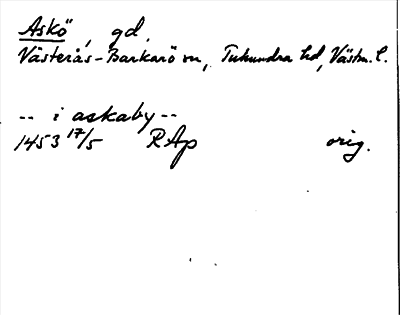 Askö, gd,
Västerås-Barkarö sn, Tuhundra hd, Västm. l.
-- i askaby --
1453 17/5 RAp orig.